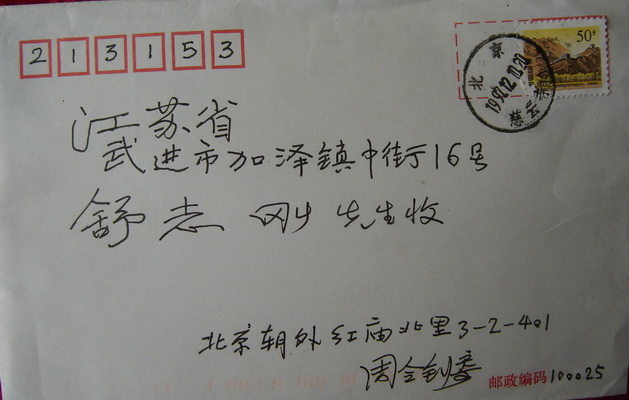 213153
50分
北京
1998.12.12.20
慈云寺
江苏省
武进市加泽镇中街16号
舒志刚先生收
北京朝外红庙北里3-2-401
周全钊寄
邮政编码100025